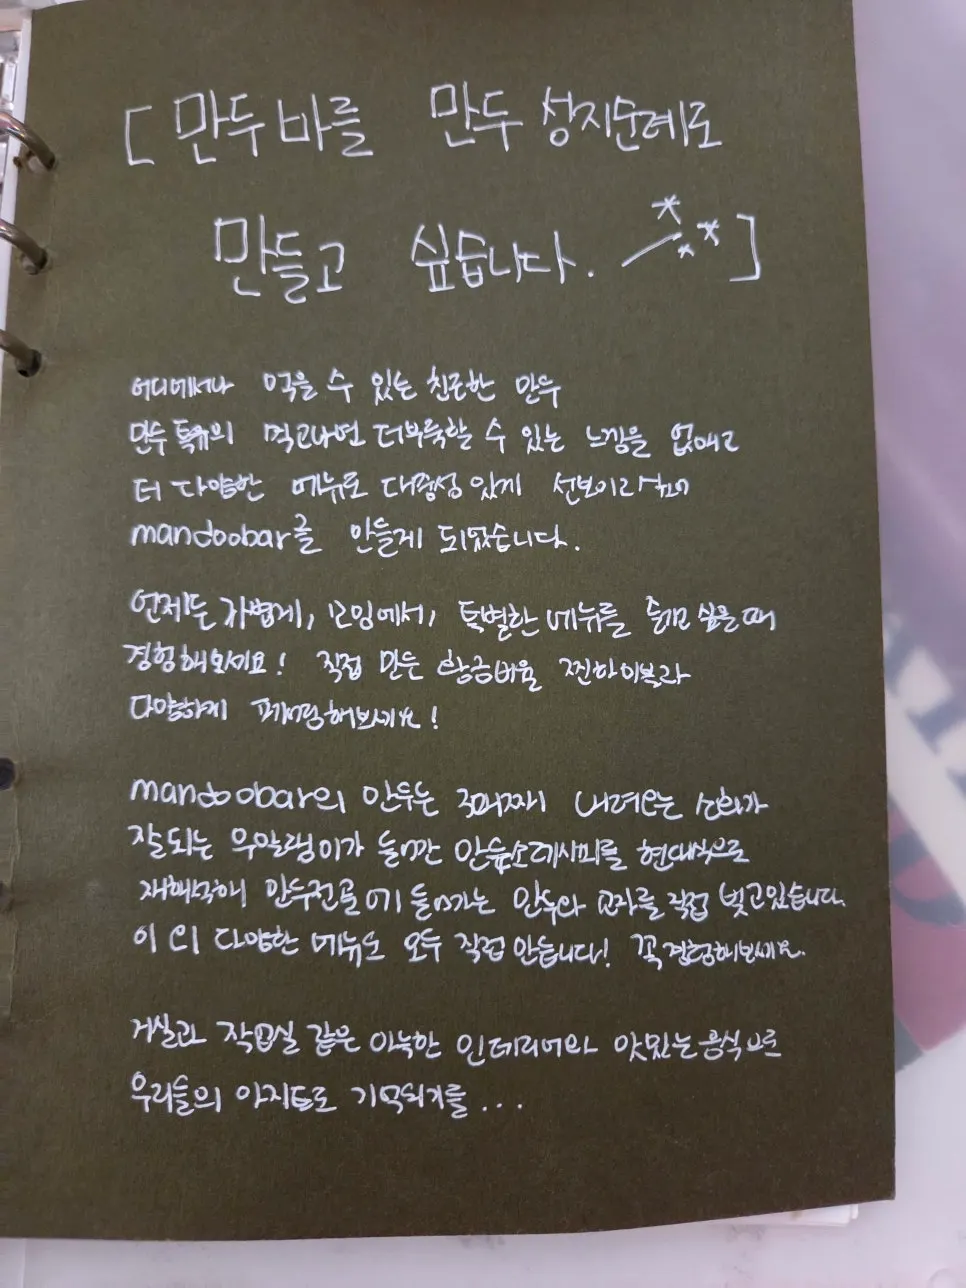 [ 만두바를 만두 성지순례로
만들고 싶습니다. ]
어디에서나 먹을 수 있는 친근한 만두
만두 특유의 먹고나면 더부룩할 수 있는 느낌을 없애고
더 다양한 메뉴로 대중성 있게 선보이려
mandoobar를 만들게 되었습니다.
언제든 가볍게, 모임에서, 특별한 메뉴를 즐기고 싶을때
경험해보세요! 직접 만든 황금비율 찐하이볼과
다양하게 페어링해보세요!
mandoobar의 만두는 3대째 내려오는 소화가
잘되는 우알랭이가 들어간 만두소레시피를 현대식으로
재해석해 만두전골에 들어가는 만두와 교자를 직접 빚고있습니다.
이 외 다양한 메뉴도 모두 직접 만듭니다! 꼭 경험해보세요.
거실과 작업실 같은 아늑한 인테리어와 맛있는 음식으로
우리들의 아지트로 기억되기를 ...